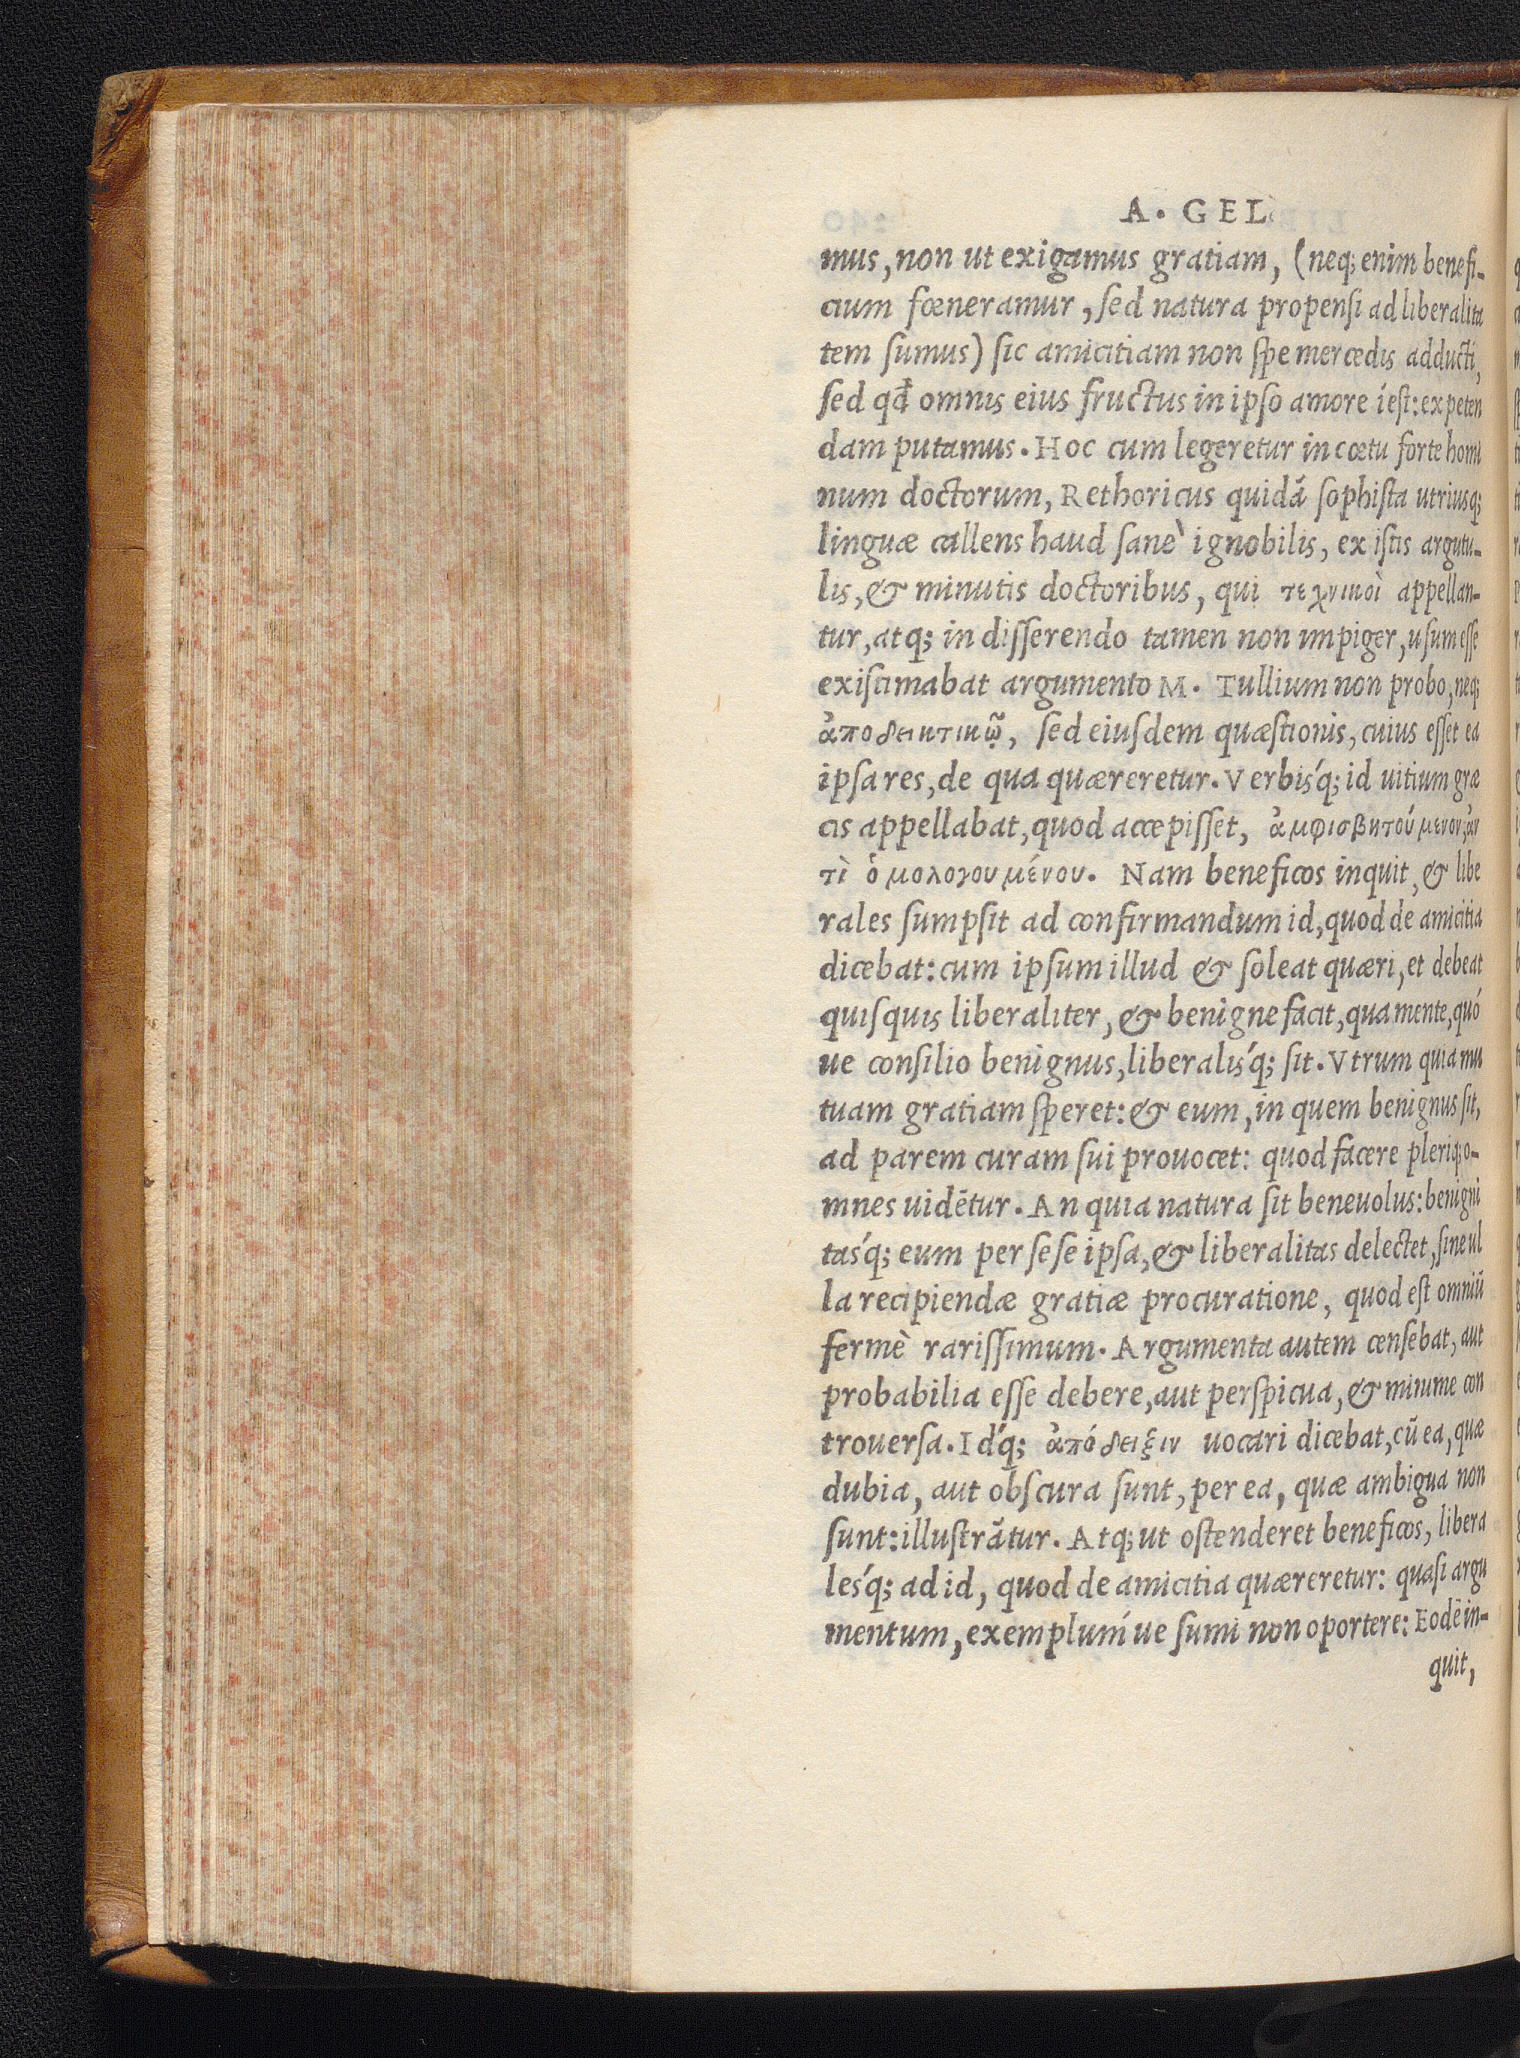 A. GEL
mus, non ut exigamus gratiam, (neq; enim benefi-
cium fœneramur, sed natura propensi ad liberalita
tem sumus) sic amicitiam non spe mercedis adducti,
sed qđ omnis eius fructus in ipso amore íest: expeten
dam putamus. Hoc cum legeretur in cœtu forte homi
num doctorum, Rethoricus quidā sophista utriusq;
linguæ callens haud sanè ignobilis, ex istis argutu-
lis, & minutis doctoribus, qui τεχνικοὶ appellan-
tur, atq; in disserendo tamen non impiger, usum esse
existimabat argumento M. Tullium non probo, neq;
ἀποδεικτικῷ, sed eiusdem quæstionis, cuius esset ea
ipsa res, de qua quæreretur. Verbisq́; id uitium græ
cis appellabat, quod accepisset, ἀμφισβητούμενον, ἀν
τὶ ὁμολογουμένου. Nam beneficos inquit, & libe
rales sumpsit ad confirmandum id, quod de amicitia
dicebat: cum ipsum illud & soleat quæri, et debeat
quisquis liberaliter, & benigne facit, qua mente, quó
ue consilio benignus, liberalisq́; sit. Vtrum quia mu
tuam gratiam speret: & eum, in quem benignus sit,
ad parem curam sui prouocet: quod facere pleriq; o-
mnes uidētur. An quia natura sit beneuolus: benigni
tasq́; eum per sese ipsa, & liberalitas delectet, sine ul
la recipiendæ gratiæ procuratione, quod est omniū
fermè rarissimum. Argumenta autem censebat, aut
probabilia esse debere, aut perspicua, & minime con
trouersa. Idq́; ἀπόδειξιν uocari dicebat, cū ea, quæ
dubia, aut obscura sunt, per ea, quæ ambigua non
sunt: illustrātur. Atq; ut ostenderet beneficos, libera
lesq́; ad id, quod de amicitia quæreretur: quasi argu
mentum, exemplumúe sumi non oportere: Eodē in-
quit,